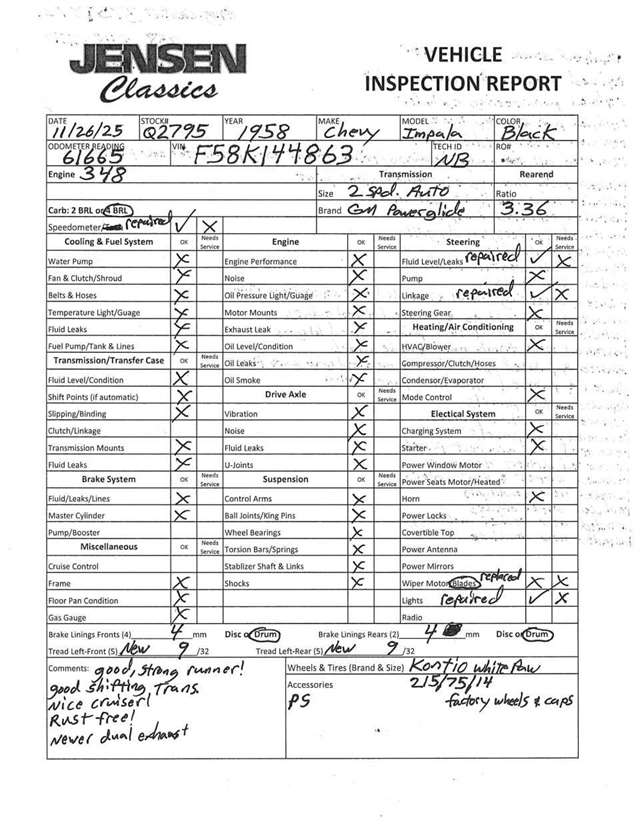 JENSEN
Classics
VEHICLE
INSPECTION REPORT
DATE 11/26/25 STOCK# Q2795 YEAR 1958 MAKE Chevy MODEL Impala COLOR Black
ODOMETER READING 61665 VIN F58K144863 TECH ID NB RO#
Engine 348 Transmission Rearend
Size 2 Spd. Auto Ratio
Carb: 2 BRL or 4 BRL Brand GM Powerglide 3.36
Speedometer repaired ✓ X
Cooling & Fuel System OK Needs Service Engine OK Needs Service Steering OK Needs Service
Water Pump X Engine Performance X Fluid Level/Leaks repaired ✓ X
Fan & Clutch/Shroud X Noise X Pump X
Belts & Hoses X Oil Pressure Light/Guage X Linkage repaired ✓ X
Temperature Light/Guage X Motor Mounts X Steering Gear X
Fluid Leaks X Exhaust Leak X Heating/Air Conditioning OK Needs Service
Fuel Pump/Tank & Lines X Oil Level/Condition X HVAC/Blower X
Transmission/Transfer Case OK Needs Service Oil Leaks X Compressor/Clutch/Hoses
Fluid Level/Condition X Oil Smoke X Condensor/Evaporator
Shift Points (if automatic) X Drive Axle OK Needs Service Mode Control X
Slipping/Binding X Vibration X Electical System OK Needs Service
Clutch/Linkage Noise X Charging System X
Transmission Mounts X Fluid Leaks X Starter X
Fluid Leaks X U-Joints X Power Window Motor
Brake System OK Needs Service Suspension OK Needs Service Power Seats Motor/Heated
Fluid/Leaks/Lines X Control Arms X Horn X
Master Cylinder X Ball Joints/King Pins X Power Locks
Pump/Booster Wheel Bearings X Covertible Top
Miscellaneous OK Needs Service Torsion Bars/Springs X Power Antenna
Cruise Control Stablizer Shaft & Links X Power Mirrors
Frame X Shocks X Wiper Motor/Blades replaced X X
Floor Pan Condition X Lights repaired ✓ X
Gas Gauge X Radio
Brake Linings Fronts (4) 4 mm Disc or Drum Brake Linings Rears (2) 4 mm Disc or Drum
Tread Left-Front (5) New 9 /32 Tread Left-Rear (5) New 9 /32
Comments: good, strong runner! Wheels & Tires (Brand & Size) Kontio White Paw
good shifting, Trans. Accessories 215/75/14
Nice cruiser! PS factory wheels & caps
Rust free!
Newer dual exhaust